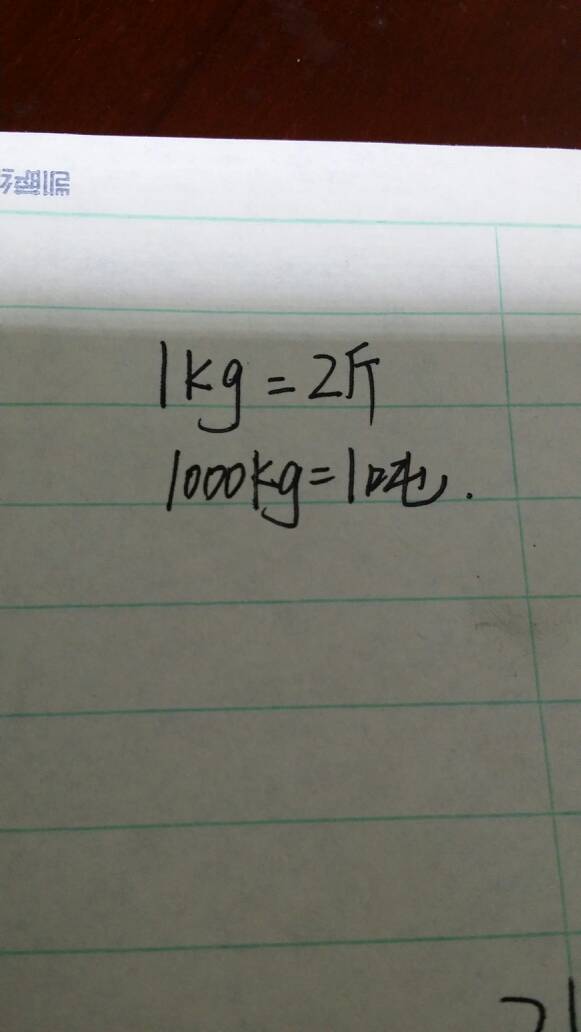 1kg=2斤
1000kg=1吨.